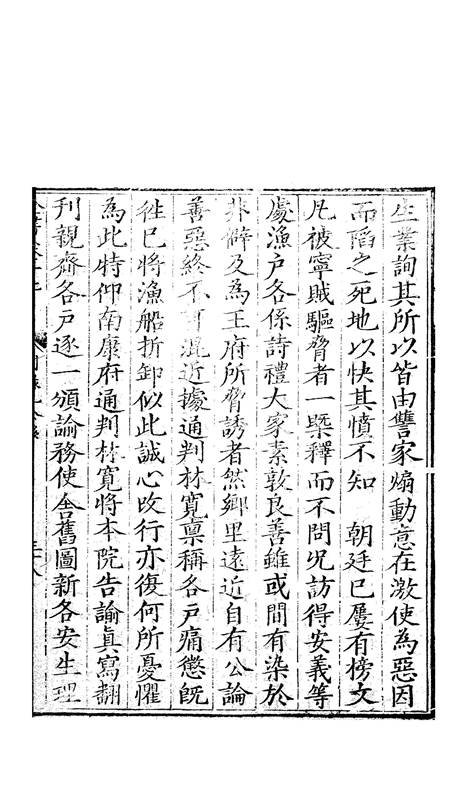 生業詢其所以皆由讐家煽動意在激使為惡因
而䧟之死地以快其憤不知　朝廷已屢有榜文
凡被寧賊驅脅者一槩釋而不問况訪得安義等
處漁戸各係詩禮大家素敦良善雖或間有染於
非僻及為王府所脅誘者然鄉里遠近自有公論
善惡終不可混近據通判林寬禀稱各戸痛懲旣
徃已將漁船折卸似此誠心改行亦復何所憂懼
為此特仰南康府通判林寬將本院告諭眞寫翻
刋親齎各戸逐一頒諭務使舎舊圖新各安生理